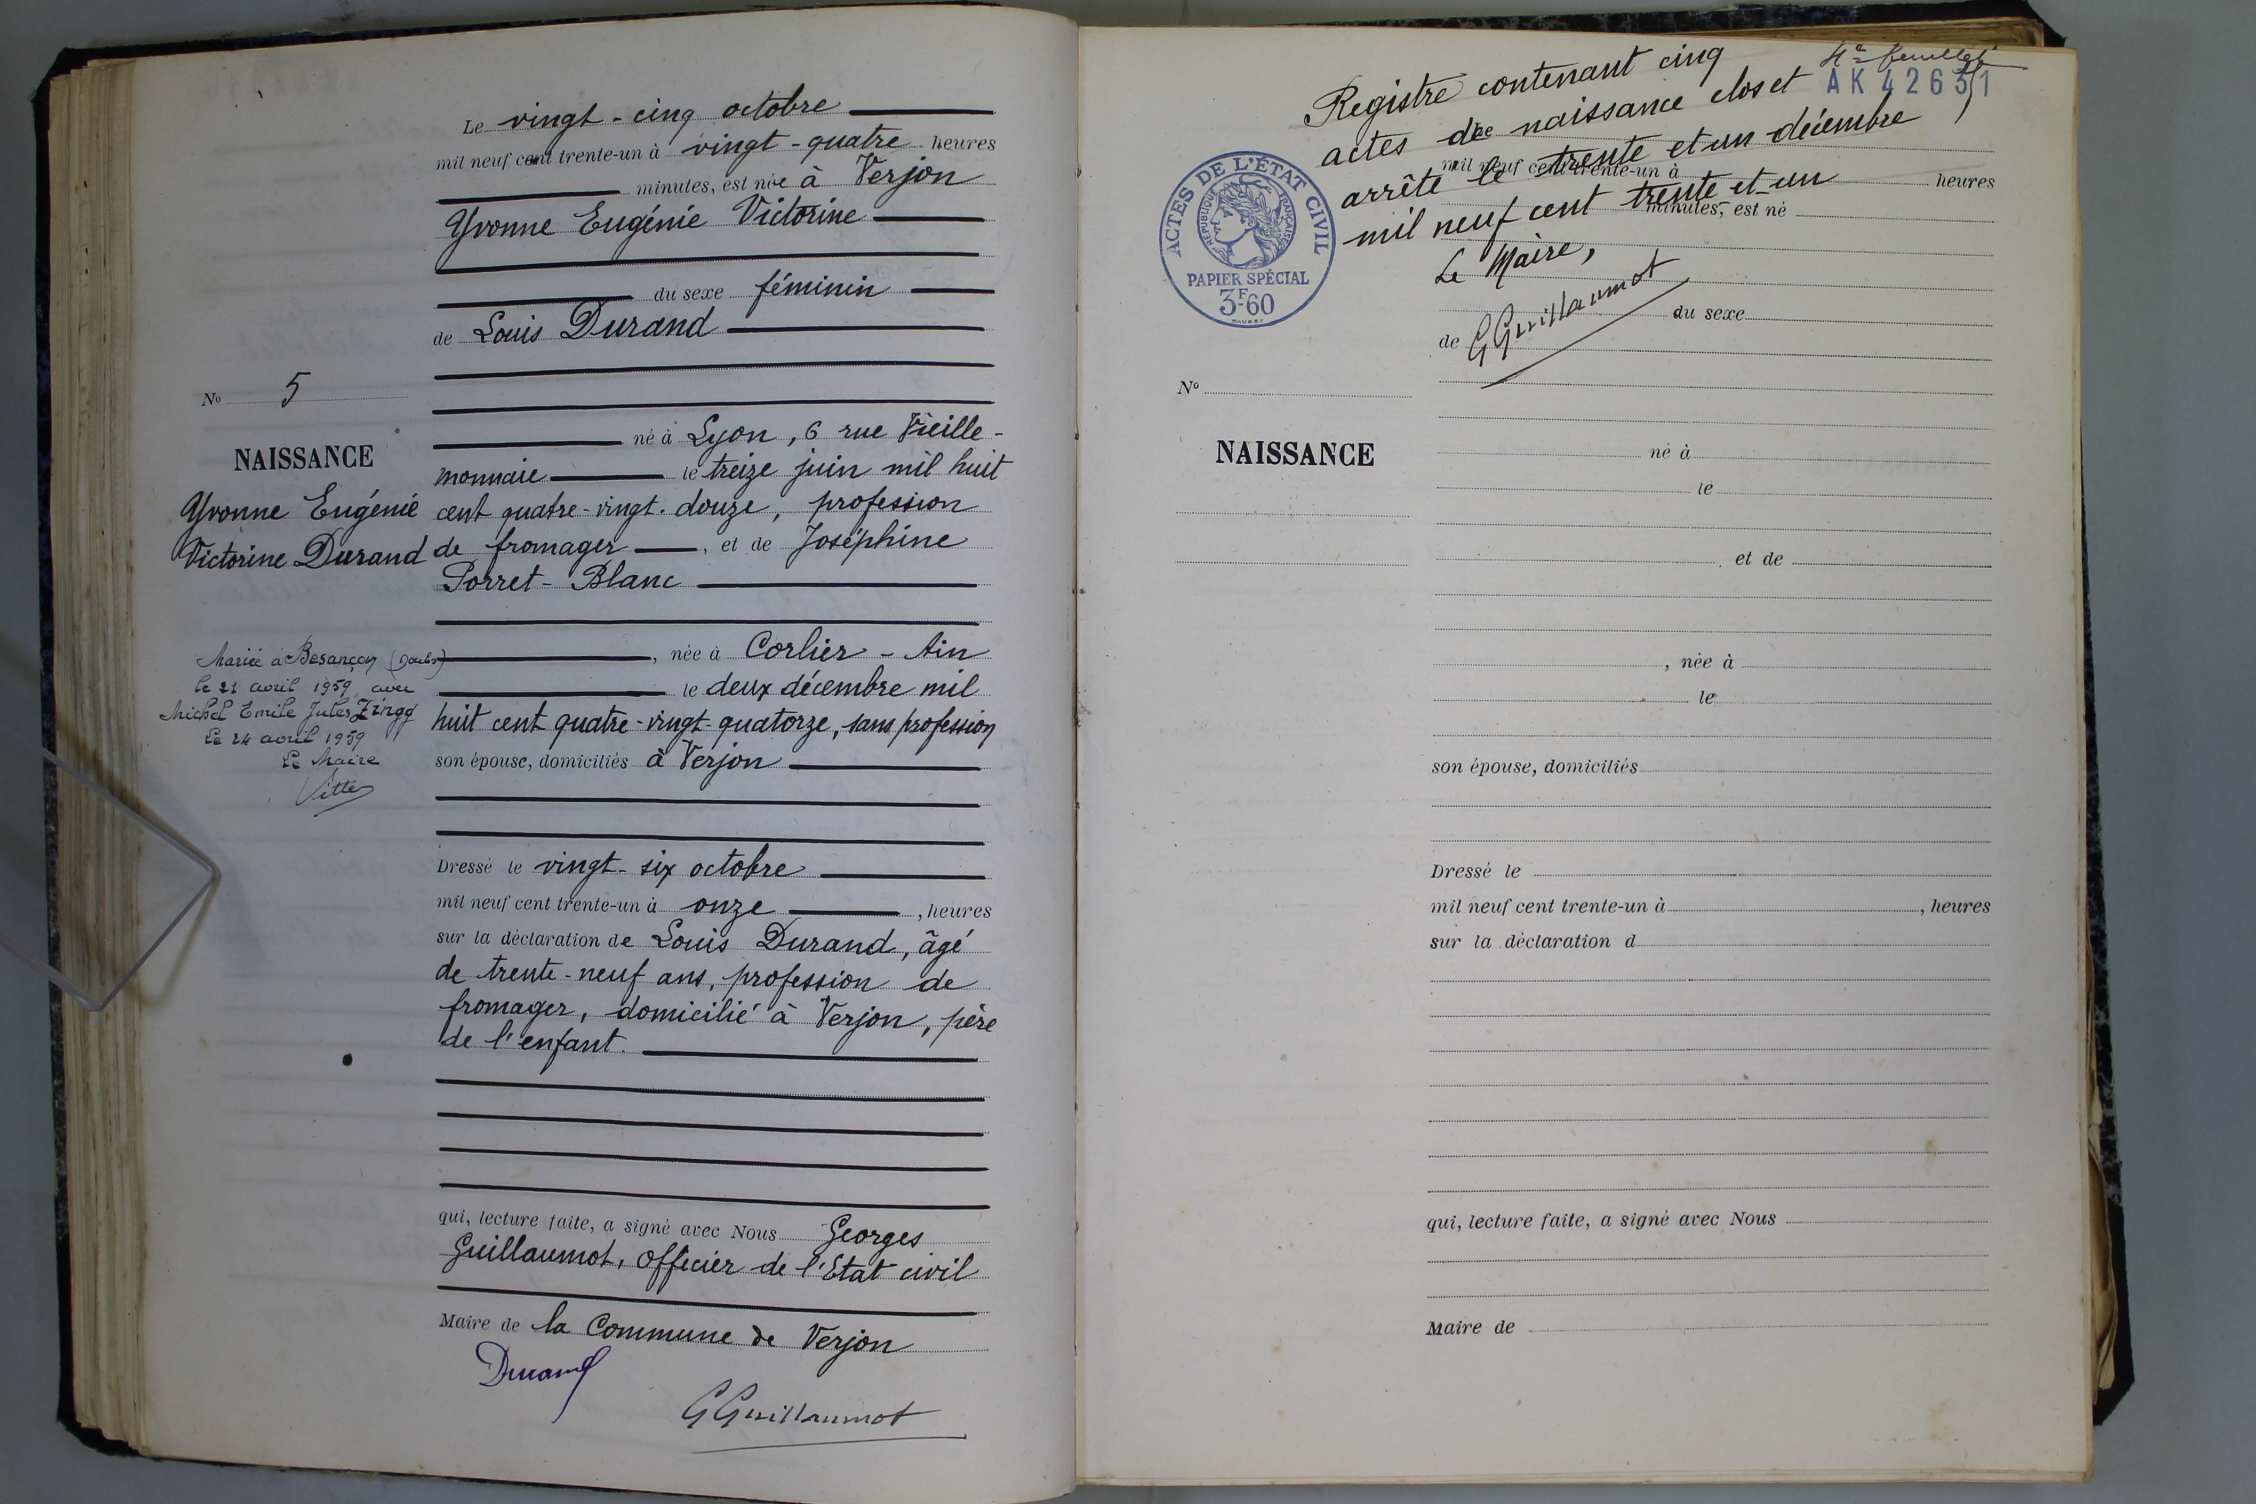 Le vingt-cinq octobre
mil neuf cent trente-un à vingt-quatre heures
minutes, est née à Verjon
Yvonne Eugénie Victorine
du sexe féminin
de Louis Durand
né à Lyon, 6 rue Vieille-
monnaie le treize juin mil huit
cent quatre-vingt-douze, profession
de fromager, et de Joséphine
Porret-Blanc
, née à Corlier - Ain
le deux décembre mil
huit cent quatre-vingt-quatorze, sans profession
son épouse, domiciliés à Verjon
Dressé le vingt-six octobre
mil neuf cent trente-un à onze, heures
sur la déclaration de Louis Durand, âgé
de trente-neuf ans, profession de
fromager, domicilié à Verjon, père
de l'enfant.
qui, lecture faite, a signé avec Nous Georges
Guillaumot, officier de l'Etat civil
Maire de la Commune de Verjon
Durand
GGuillaumot
No 5
NAISSANCE
Yvonne Eugénie
Victorine Durand
Mariée à Besançon (Doubs)
le 21 avril 1959, avec
Michel Emile Jules Zingg
Le 24 avril 1959
Le Maire
Vitte
4e feuillet
AK 42631
Registre contenant cinq
actes de naissance clos et
arrêté le trente et un décembre
mil neuf cent trente et un
Le Maire,
GGuillaumot
ACTES DE L'ÉTAT CIVIL
RÉPUBLIQUE FRANÇAISE
PAPIER SPÉCIAL
3F-60
mil neuf cent trente-un à heures
minutes, est né
du sexe
de
No
NAISSANCE
né à
le
, et de
, née à
le
son épouse, domiciliés
Dressé le
mil neuf cent trente-un à , heures
sur la déclaration d
qui, lecture faite, a signé avec Nous
Maire de